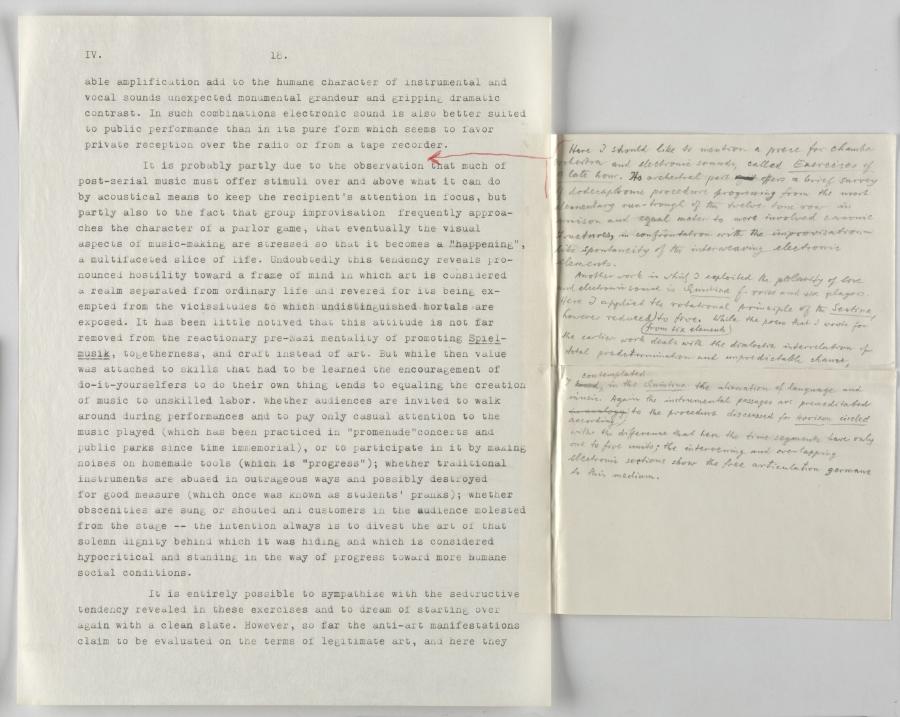 IV.
18.
able amplification add to the humane character of instrumental and
vocal sounds unexpected monumental grandeur and gripping dramatic
contrast. In such combinations electronic sound is also better suited
to public performance than in its pure form which seems to favor
private reception over the radio or from a tape recorder.
It is probably partly due to the observation that much of
post-serial music must offer stimuli over and above what it can do
by acoustical means to keep the recipient's attention in focus, but
partly also to the fact that group improvisation frequently approa-
ches the character of a parlor game, that eventually the visual
aspects of music-making are stressed so that it becomes a "happening",
a multifaceted slice of life. Undoubtedly this tendency reveals pro-
nounced hostility toward a frame of mind in which art is considered
a realm separated from ordinary life and revered for its being ex-
empted from the vicissitudes to which undistinguished mortals are
exposed. It has been little notived that this attitude is not far
removed from the reactionary pre-Nazi mentality of promoting Spiel-
musik, togetherness, and craft instead of art. But while then value
was attached to skills that had to be learned the encouragement of
do-it-yourselfers to do their own thing tends to equaling the creation
of music to unskilled labor. Whether audiences are invited to walk
around during performances and to pay only casual attention to the
music played (which has been practiced in "promenade"concerts and
public parks since time immemorial), or to participate in it by making
noises on homemade tools (which is "progress"); whether traditional
instruments are abused in outrageous ways and possibly destroyed
for good measure (which once was known as students' pranks); whether
obscenities are sung or shouted and customers in the audience molested
from the stage -- the intention always is to divest the art of that
solemn dignity behind which it was hiding and which is considered
hypocritical and standing in the way of progress toward more humane
social conditions.
It is entirely possible to sympathize with the seductive
tendency revealed in these exercises and to dream of starting over
again with a clean slate. However, so far the anti-art manifestations
claim to be evaluated on the terms of legitimate art, and here they
Here I should like to mention a piece for chamber
orchestra and electronic sounds, called Exercises of
late hour. Its orchestral part offers a brief survey
dodecaphonic procedure progressing from the most
elementary run-trough of the twelve tone row in
unison and equal meter to more involved canonic
structures, in confrontation with the improvisation
like spontaneity of the interweaving electronic
elements.
Another work in which I exploited the polarity of live
and electronic sound is Quintina f. voice and six players.
Here I applied the rotational principle of the Sestina,
however reduced to five. While the poem that I wrote for
(from six elements)
the earlier work deals with the dialectic interrelation of
total predetermination and unpredictable chance,
contemplated
I in the Quintina the alienation of language and
music. Again the instrumental passages are premeditated
according to the procedure discussed for Horizon circled
with the difference that here the time segments have only
one to five units; the intervening and overlapping
electronic sections show the free articulation germane
to this medium.